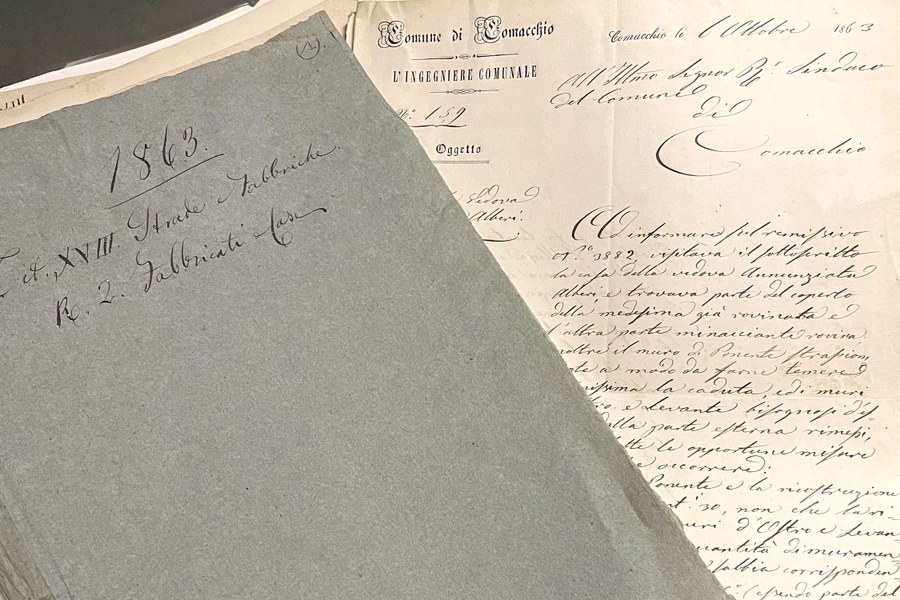 1863.
Tit. XVIII. Strade e Fabbriche.
R. 2. Fabbricati Case
Comune di Comacchio
L'INGEGNERE COMUNALE
N.° 159
Oggetto
Vedova
Alberi.
Comacchio li 6 Ottobre 1863
All'Illmo Signor Sindaco
del Comune
di
Comacchio
Ad informare sul remissivo
N.° 3882, visitava il sottoscritto
la casa della vedova Annunziata
Alberi, e trovava parte del coperto
della medesima già rovinata ed
l'altra parte minacciante rovina.
noltre il muro di Ponente strapion,
te a modo da farne temere
issima la caduta, ed i muri
tro e Levante bisognosi d'es-
alla parte esterna rimessi,
tte le opportune misure
e occorrere:
Ponente e la ricostruzione
30, non che la ri-
uri d'Ostro e Levan-
uantità di muramen
sabbia corrisponden
(essendo parte del